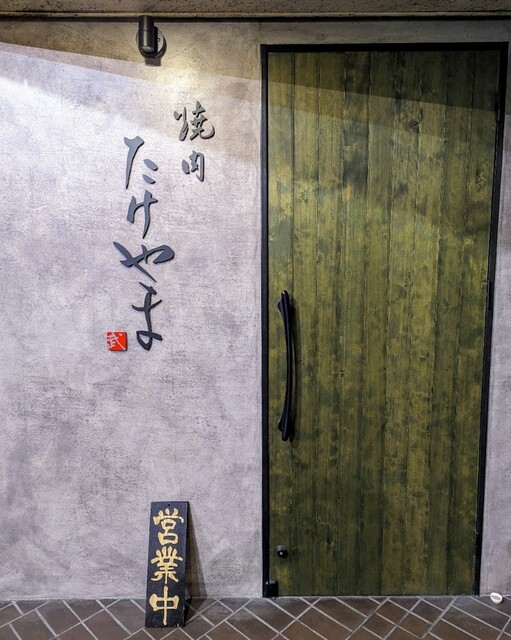 焼肉
たけやま
武
営業中